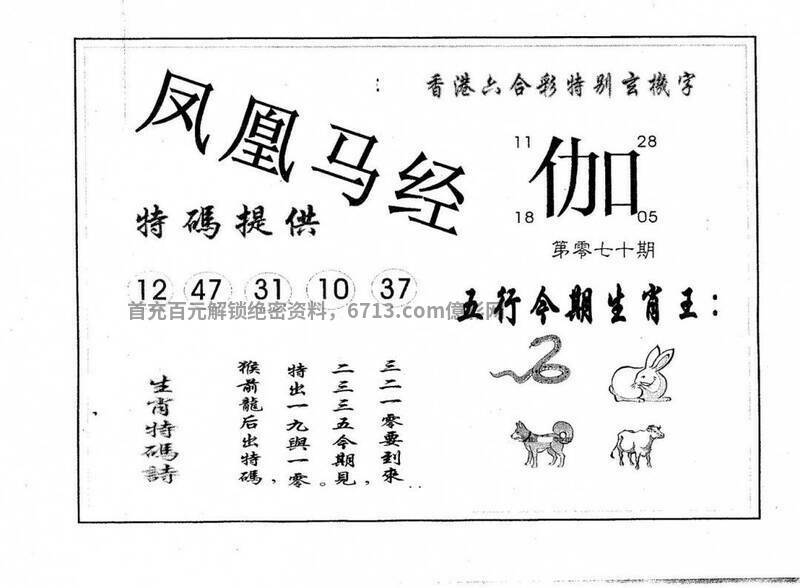 香港六合彩特别玄機字
凤凰马经
11 28
伽
18 05
特碼提供
第零七十期
12 47 31 10 37
首充百元解锁绝密资料，6713.com億彩网
五行今期生肖王：
三二一零要到來，
二三三五今期見。
特出一九與一零，
猴前龍后出特碼，
生肖特碼詩